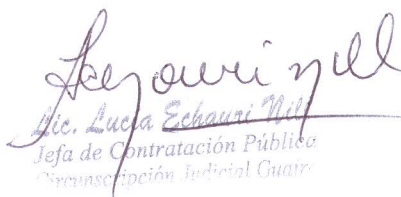 Lic. Lucia Echauri Nill
Jefa de Contratación Pública
Circunscripción Judicial Guairá